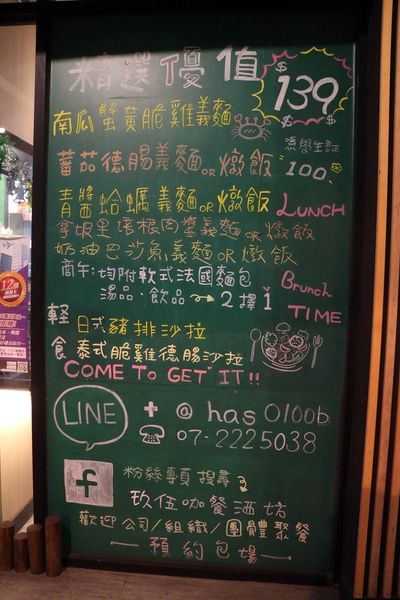 精選優值 $139
南瓜蟹黃脆雞義麵
憑學生証
蕃茄德腸義麵OR燉飯 100
青醬蛤蠣義麵OR燉飯 LUNCH
拿坡里培根肉醬義麵OR燉飯
奶油巴沙魚義麵OR燉飯
商午:均附軟式法國麵包 Brunch
湯品·飲品→2擇1 TIME
輕食
日式豬排沙拉
泰式脆雞德腸沙拉
COME TO GET IT!!
LINE + @has0100b
☎ 07-2225038
f 粉絲專頁搜尋
玖伍咖餐酒坊
歡迎公司/組織/團體聚餐
預約包場